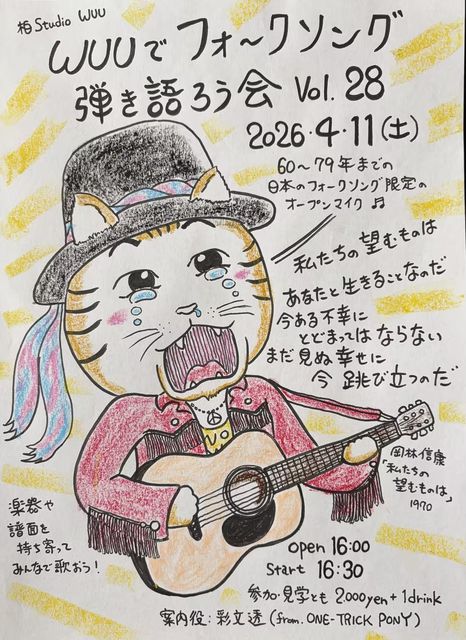 柏 Studio WUU
WUUで フォ〜クソング
弾き語ろう会 Vol. 28
2026・4・11(土)
60〜79年までの
日本のフォークソング限定の
オープンマイク ♫
私たちの望むものは
あなたと生きることなのだ
今ある不幸に
とどまってはならない
まだ見ぬ幸せに
今 跳び立つのだ
岡林信康
「私たちの
望むものは」
1970
NO
楽器や
譜面を
持ち寄って
みんなで歌おう!
open 16:00
Start 16:30
参加・見学とも 2.000yen+1drink
案内役:彩文透(from. ONE-TRICK PONY)